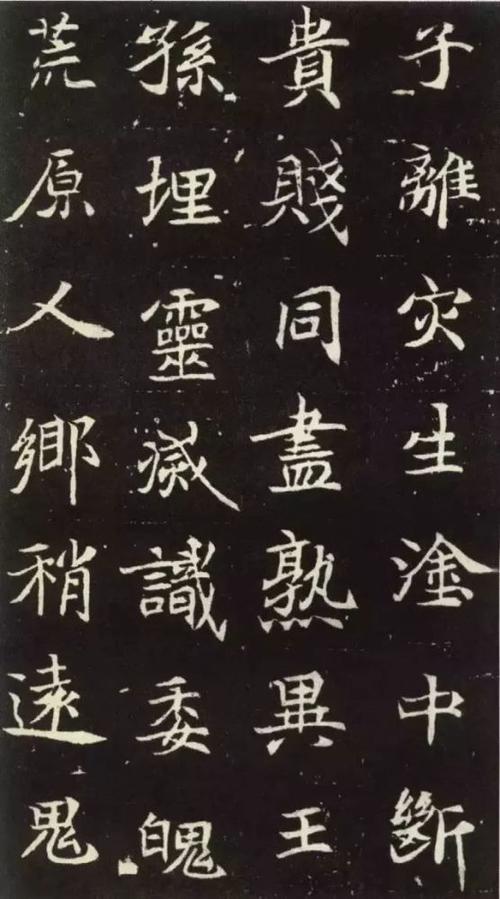 子離灾生塗中斷
貴賤同盡熟異王
孫埋靈滅識委魄
荒原人鄉稍遠鬼